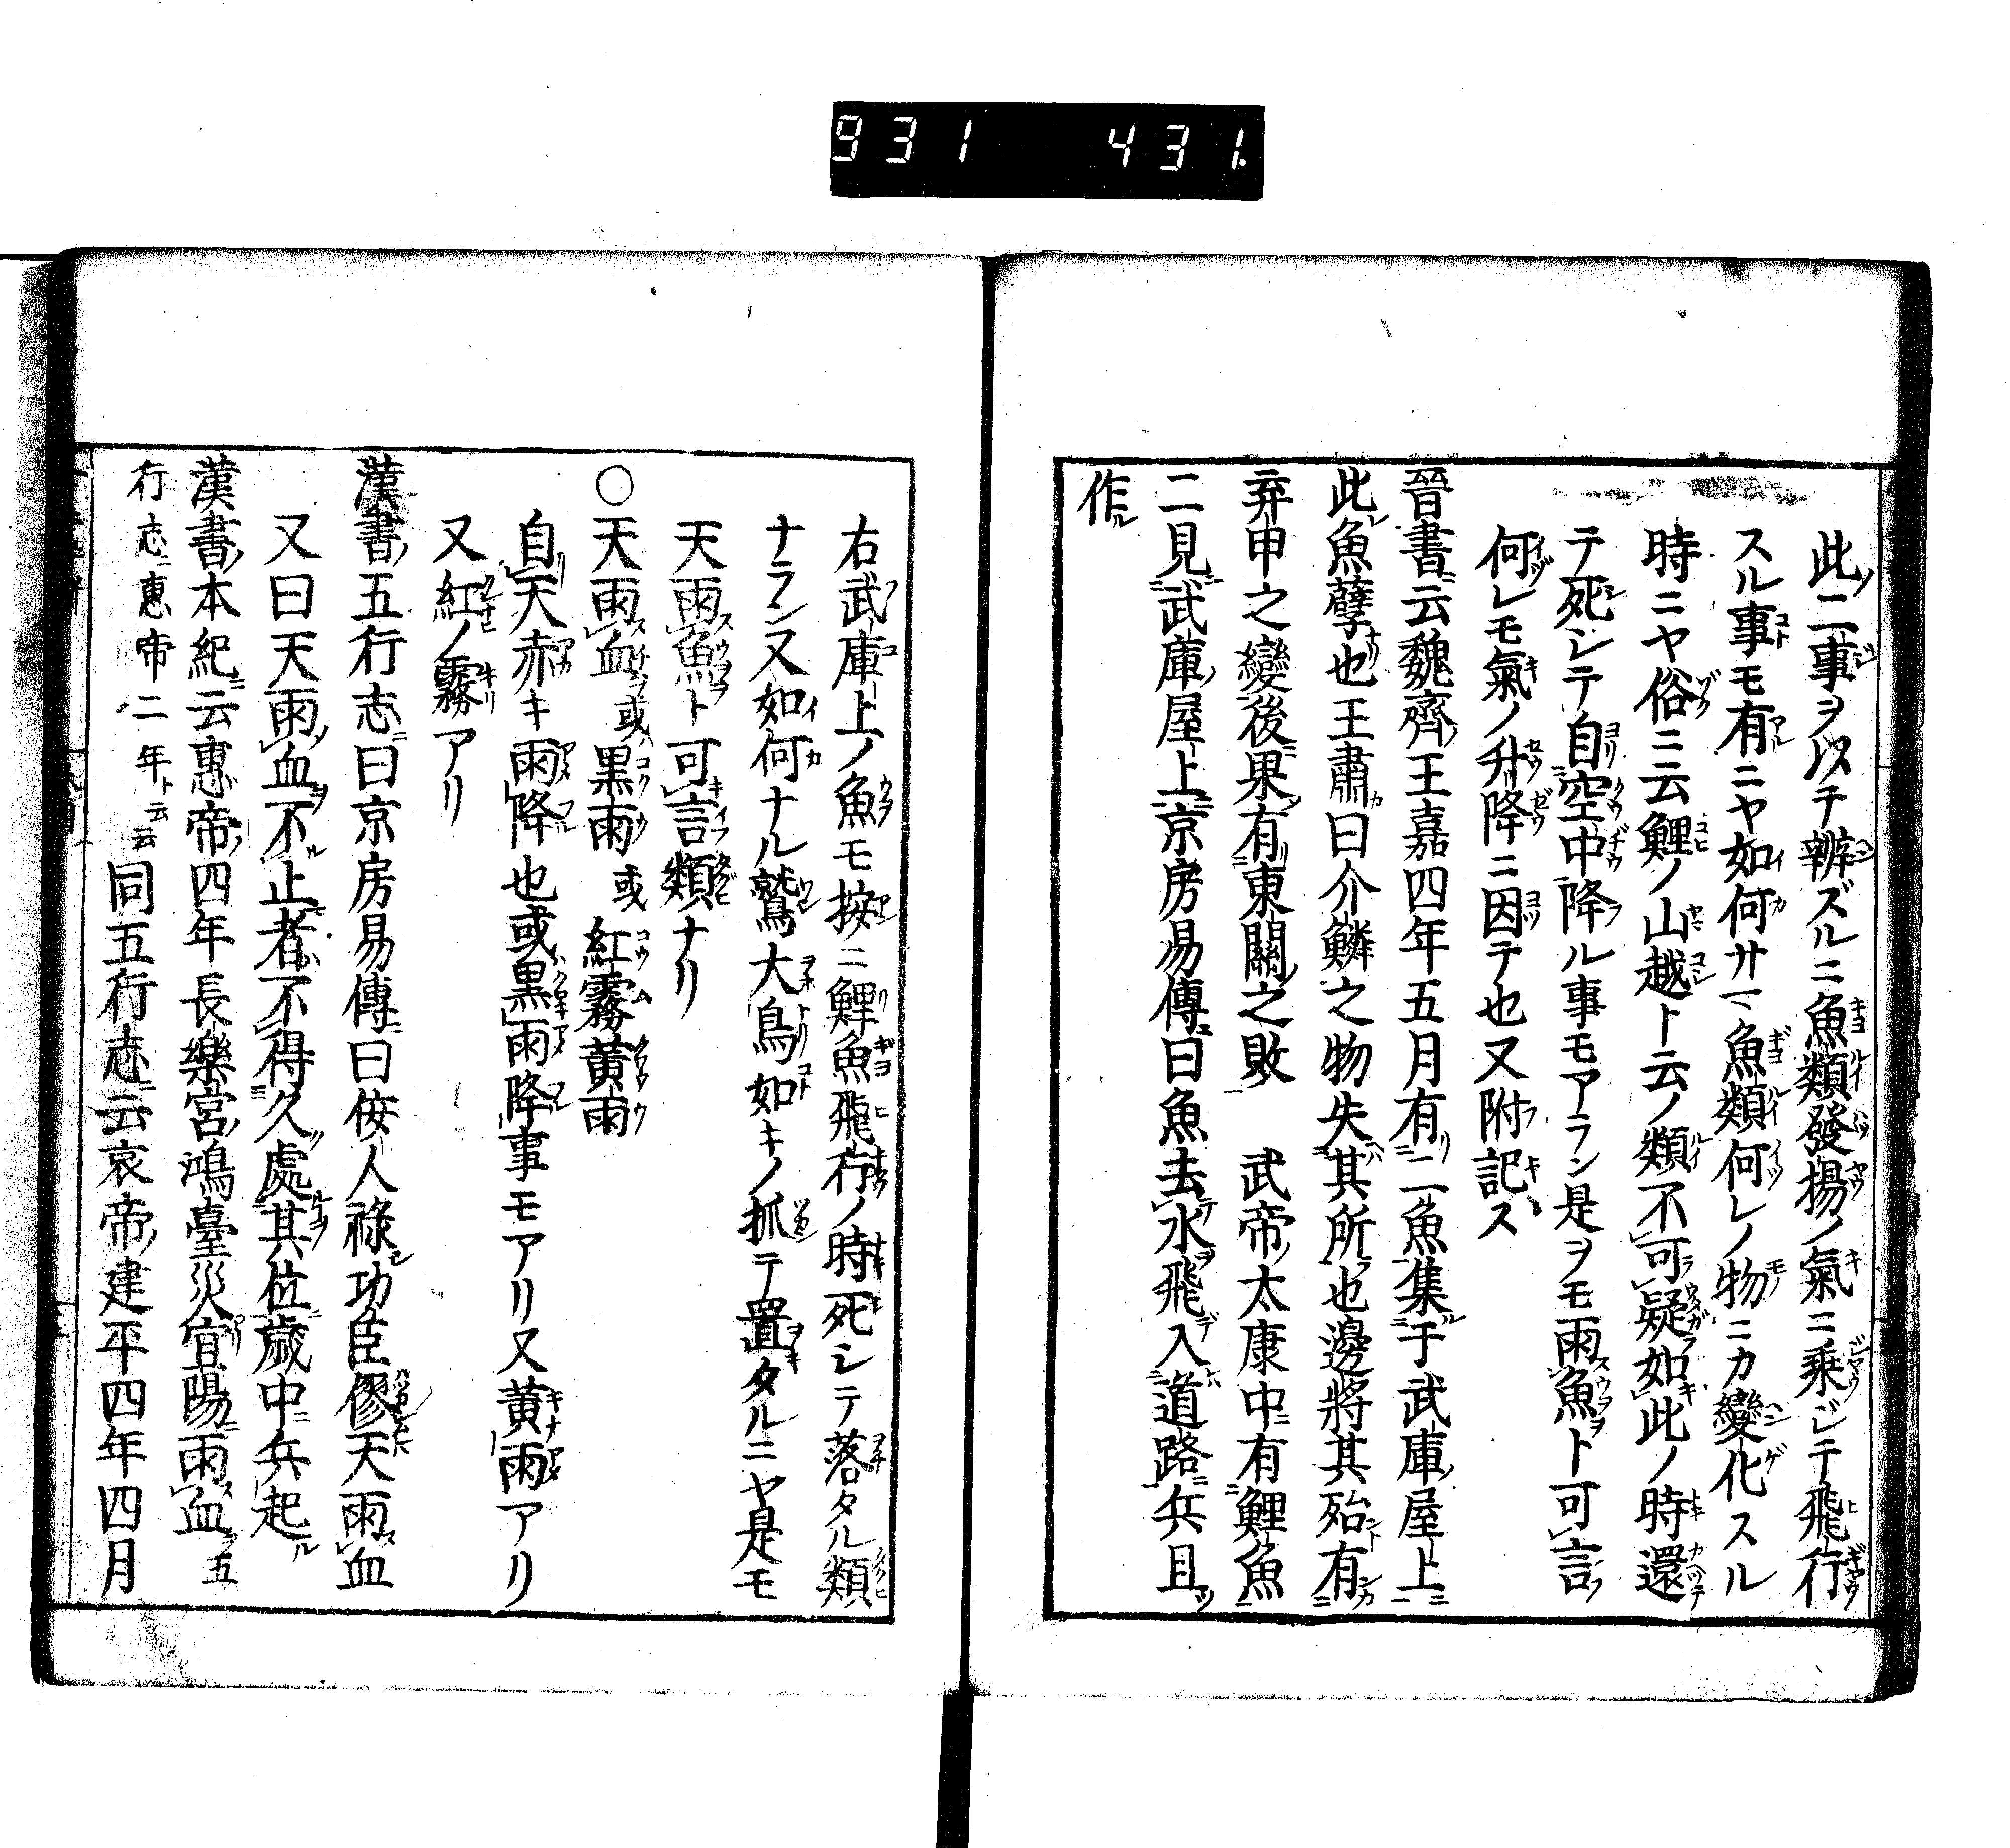 931 431.
此ノ二事ヲ以テ辨ズルニ魚類發揚ノ氣ニ乗ジテ飛行
スル事モ有ニヤ如何サマ魚類何レノ物ニカ變化スル
時ニヤ俗ニ云鯉ノ山越ト云ノ類不可疑如此ノ時還
テ死シテ自空中降ル事モアラン是ヲモ雨魚ト可言
何レモ氣ノ升降ニ因テ也又附記ス
晉書云魏齊王嘉四年五月有二魚集于武庫屋上
此魚孽也王肅曰介鱗之物失其所也邊將其殆有
弃甲之變後果有東關之敗 武帝太康中有鯉魚
二見武庫屋上京房易傳曰魚去水飛入道路兵且
作
右武庫上ノ魚モ按ニ鯉魚飛行ノ時死シテ落タル類
ナラン又如何ナル鷲大鳥如キノ抓テ置タルニヤ是モ
天雨魚ト可言類ナリ
○天雨血或黒雨或紅霧黄雨
自天赤キ雨降也或黒雨降事モアリ又黄雨アリ
又紅ノ霧アリ
漢書五行志曰京房易傳曰侫人祿功臣僇天雨血
又曰天雨血不止者不得久處其位歳中兵起
漢書本紀云惠帝四年長樂宮鴻臺災宜陽雨血五
行志惠帝二年ト云云同五行志云哀帝建平四年四月